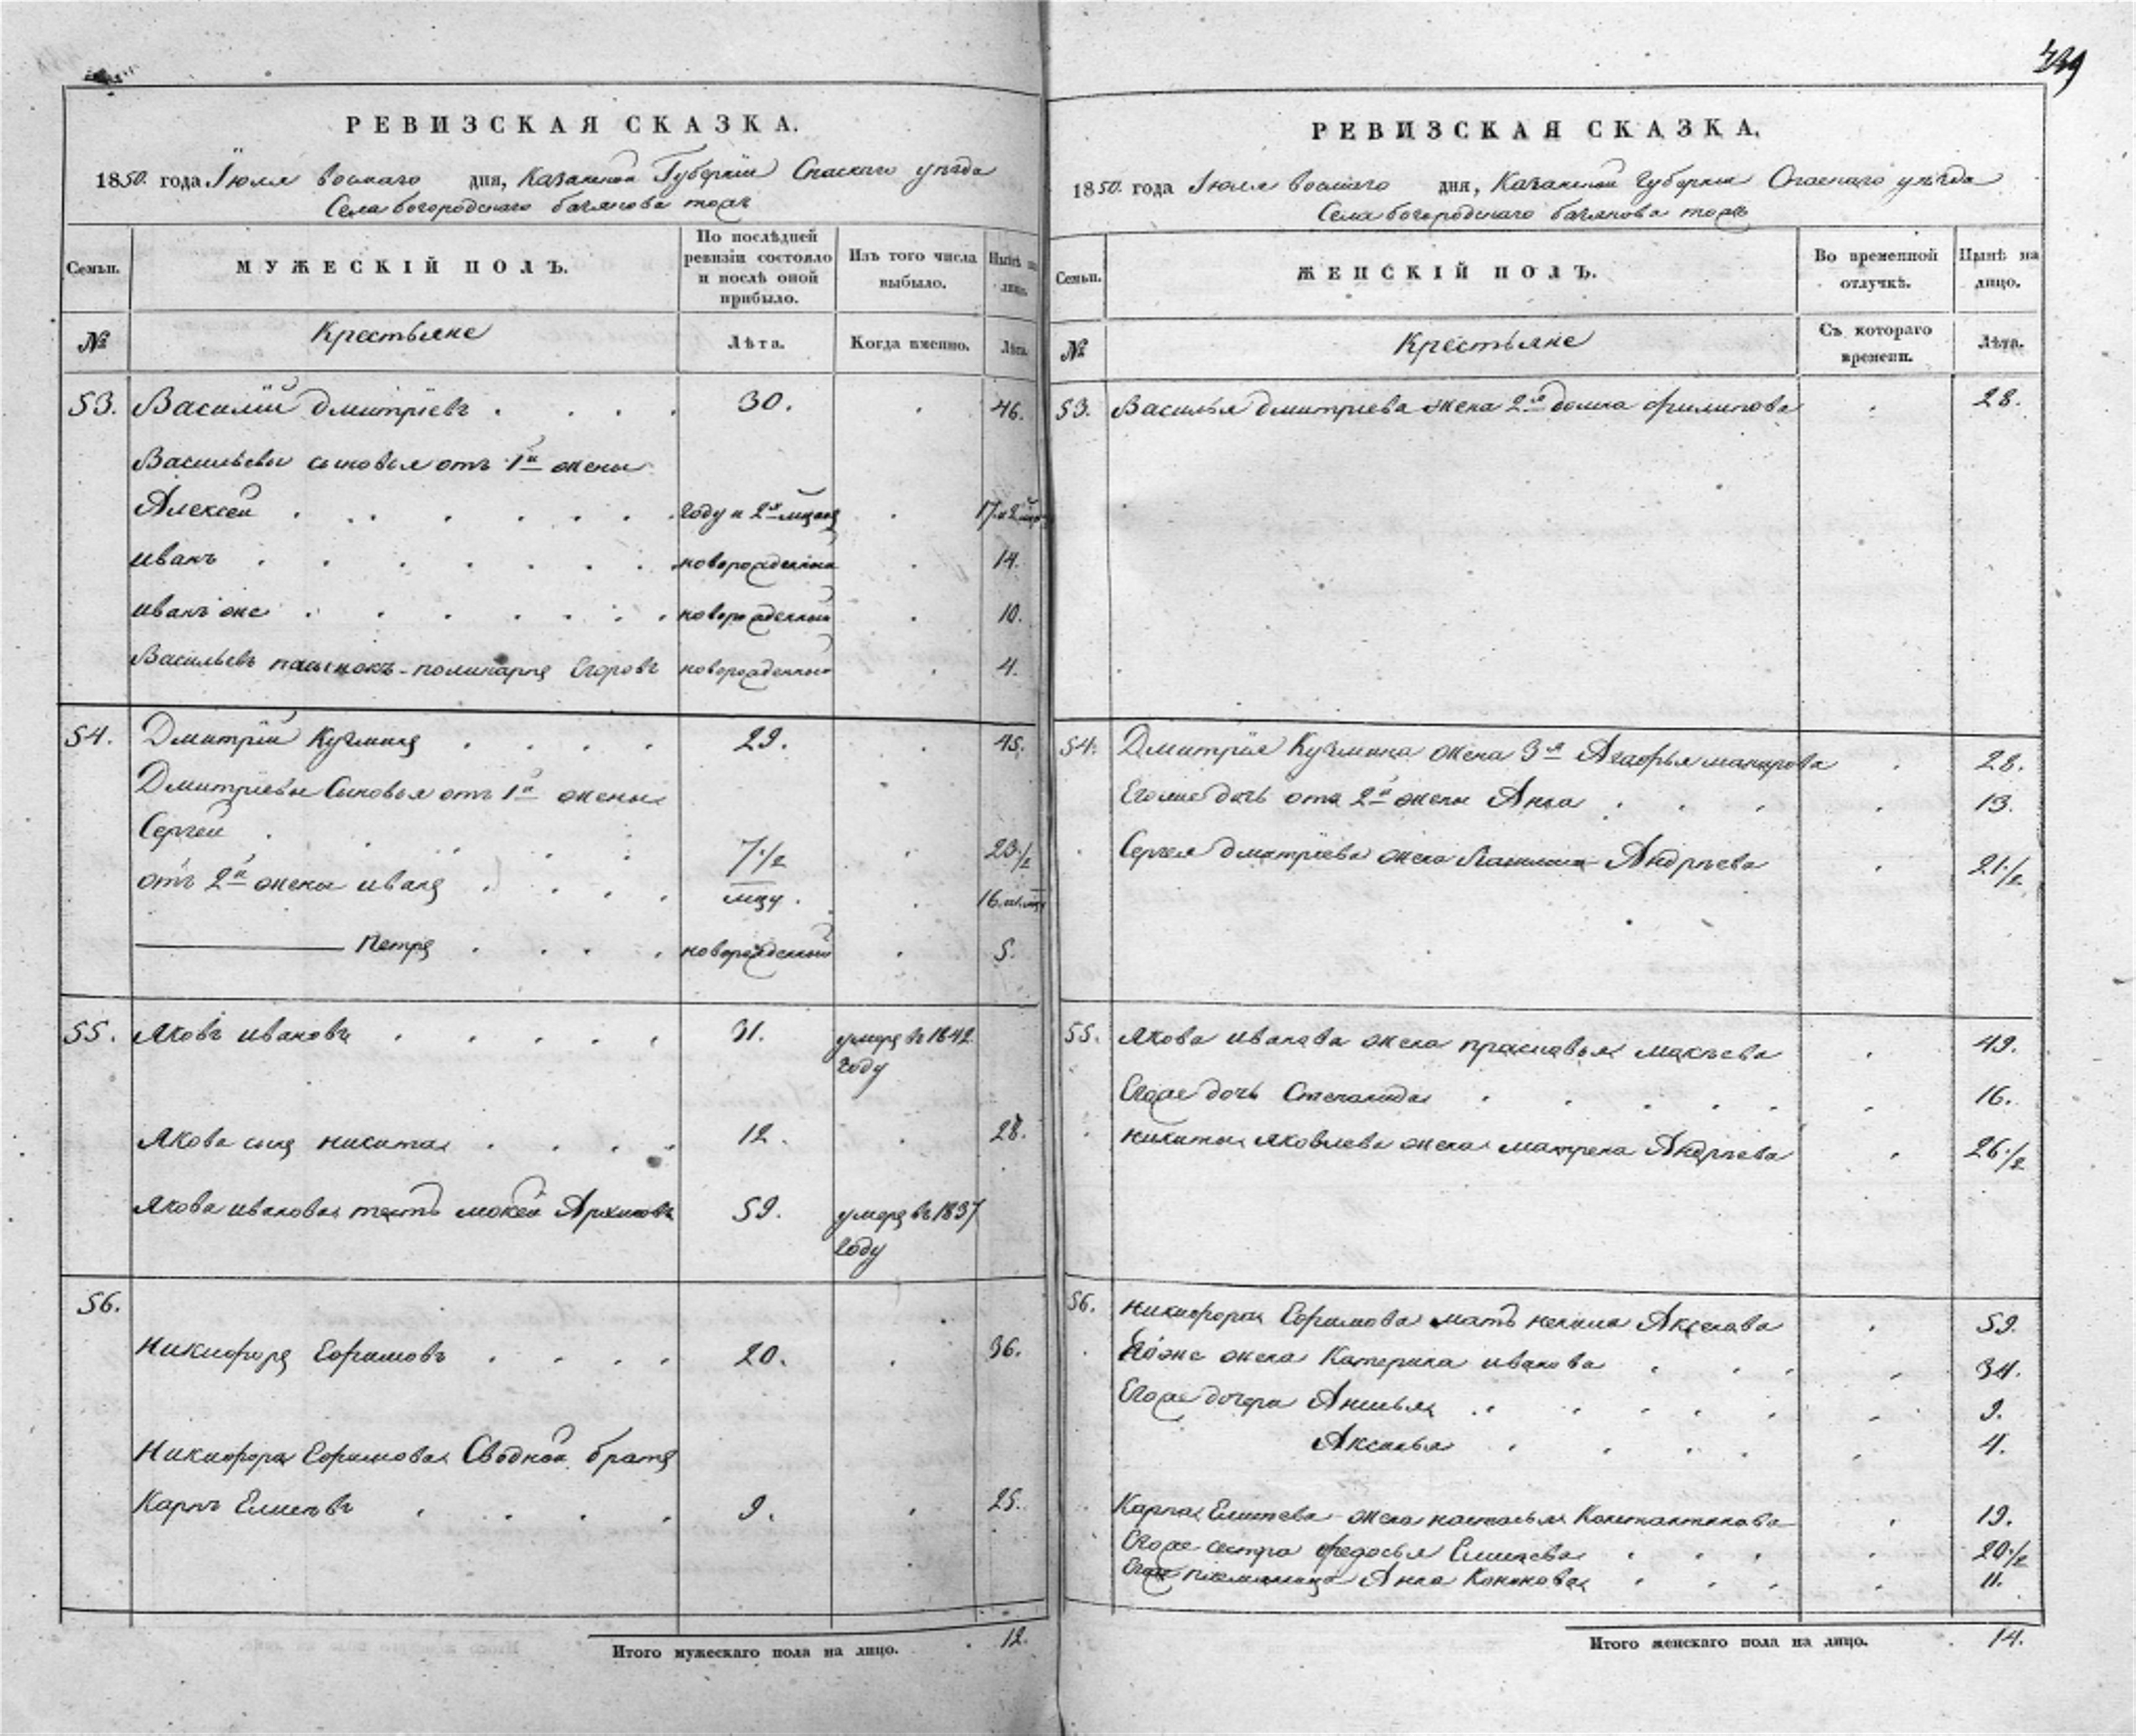 439
РЕВИЗСКАЯ СКАЗКА.
1850. года Іюля восмаго дня, Казанской Губерніи Спаскаго уѣзда
Села богородскаго
Семьи.
МУЖЕСКІЙ ПОЛЪ.
По послѣдней ревизіи состояло и послѣ оной прибыло.
Изъ того числа выбыло.
Нынѣ на лицо.
№
Крестьяне
Лѣта.
Когда именно.
Лѣта.
53. Василій Дмитріевъ 30. 46.
Васильевы сыновья отъ 1й жены
Алексей году и 2х мцовъ 17. и 2
иванъ новорожденной 14.
иванъ же новорожденный 10.
Васильевъ пасынокъ поликарпъ Егоровъ новорожденный 4.
54. Дмитрій Кузминъ 29. 45.
Дмитріевы Сыновья отъ 1й жены
Сергей 7 1/2 23 1/2
отъ 2й жены иванъ мцу. 16.
Петръ новорожденный 5.
55. Яковъ ивановъ 31. умеръ въ 1842 году
Якова сынъ никита 12. 28.
Якова иванова тесть мокей Архиповъ 59. умеръ въ 1837 году
56.
Никифоръ Ефимовъ 20. 36.
Никифора Ефимова Сводной братъ
Карпъ Елисѣвъ 9. 25.
Итого мужескаго пола на лицо. 12.
РЕВИЗСКАЯ СКАЗКА.
1850. года Іюля восмаго дня, Казанской Губерніи Спаскаго уѣзда
Села богородскаго
Семьи.
ЖЕНСКІЙ ПОЛЪ.
Во временной отлучкѣ.
Нынѣ на лицо.
№
Крестьяне
Съ котораго времени.
Лѣта.
53. Василья дмитриева жена 2я домна филипова 28.
54. Дмитрія Кузмина жена 3я Агафья макарова 28.
Его же дочь отъ 2й жены Анна 13.
Сергея дмитріева жена Андрѣева 21 1/2
55. Якова иванова жена прасковья мокѣева 49.
Его же дочь Степанида 16.
никиты яковлева жена матрена Андрѣева 26 1/2
56. никифора Ефимова мать ненила Аксенова 59.
Его же жена Катерина иванова 34.
Его же дочери Анисья 9.
Аксинья 4.
Карпа Елисѣева жена настасья Константинова 19.
Его же сестра федосья Елисѣева 20 1/2
Его же племянница Анна Кононова 11.
Итого женскаго пола на лицо. 14.